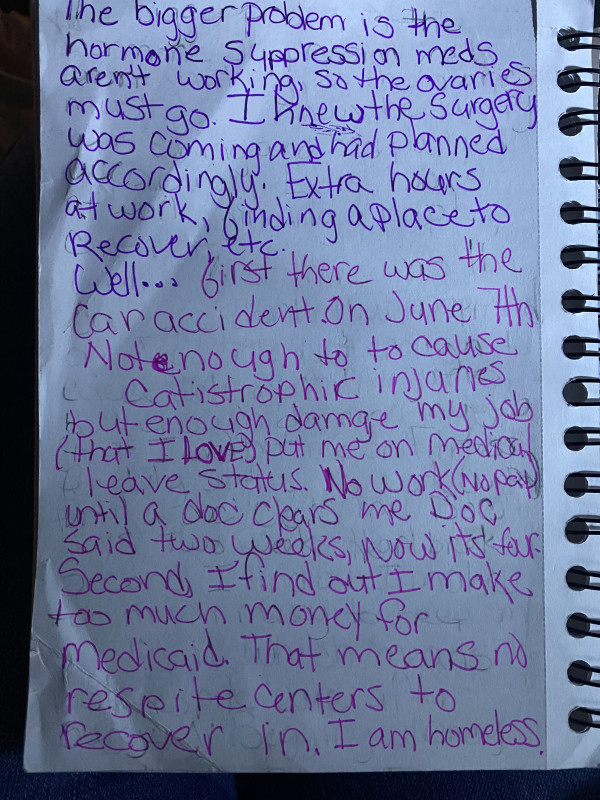 The bigger problem is the
hormone suppression meds
aren't working, so the ovaries
must go. I knew the surgery
was coming and had planned
accordingly. Extra hours
at work, finding a place to
Recover, etc.
Well... first there was the
Car accident. On June 7th
Not enough to to cause
Catistrophic injuries
but enough damge my job
(that I LOVE) put me on medical
leave status. No work (No pay)
until a doc clears me Doc
said two weeks, now its four.
Second, I find out I make
too much money for
medicaid. That means no
respite centers to
recover in. I am homeless.